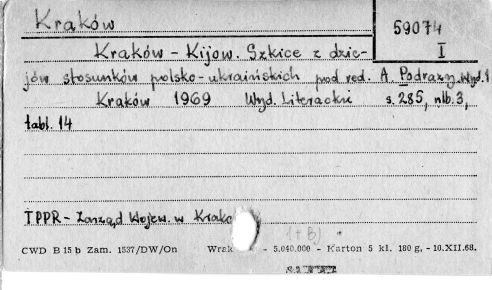 Kraków
59074
I
Kraków - Kijów. Szkice z dzie-
jów stosunków polsko-ukraińskich pod red. A. Podrazy. Wyd. 1
Kraków 1969 Wyd. Literackie s. 285, nlb. 3,
tabl. 14
TPPR - Zarząd Wojew. w Krako
(1+B)
CWD B 15 b Zam. 1537/DW/On Wrzk - 5.040.000 - Karton 5 kl. 180 g. - 10.XII.68.